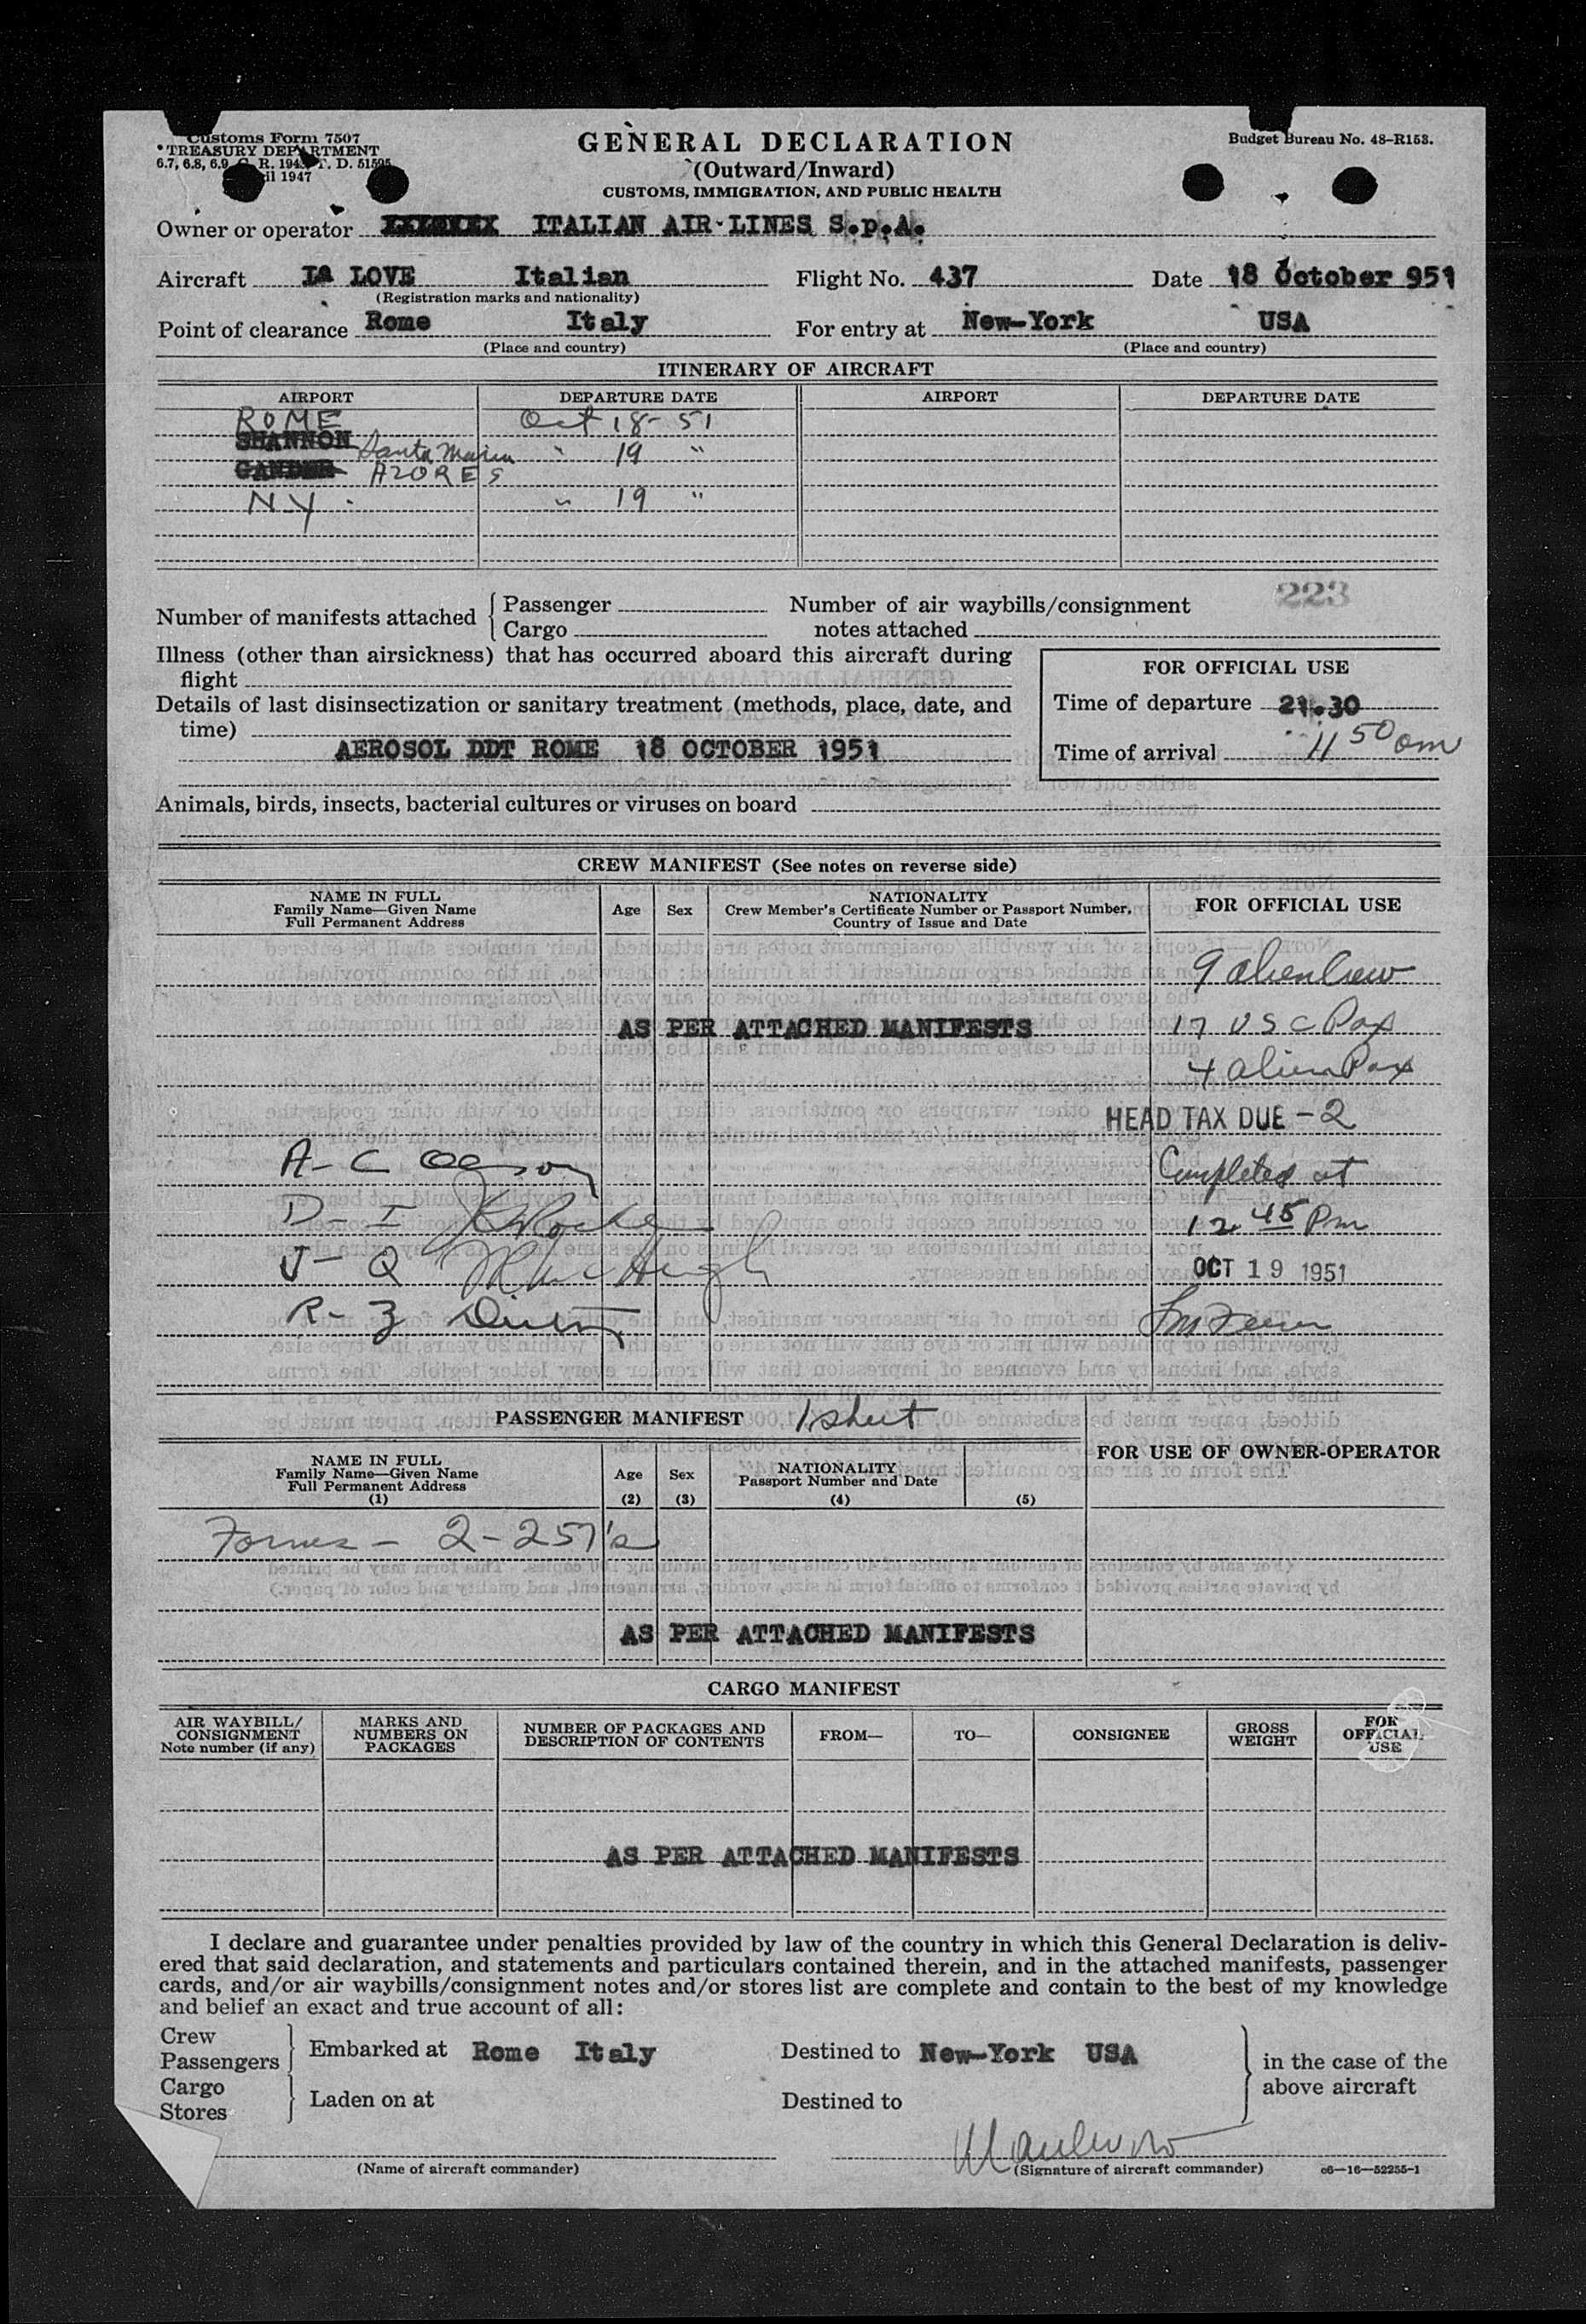 Customs Form 7507
TREASURY DEPARTMENT
6.7, 6.8, 6.9, C. R. 1943, T. D. 51595
April 1947
GENERAL DECLARATION
(Outward/Inward)
CUSTOMS, IMMIGRATION, AND PUBLIC HEALTH
Budget Bureau No. 48-R153.
Owner or operator ITALIAN AIR-LINES S.p.A.
Aircraft IA LOVE Italian Flight No. 437 Date 18 October 951
(Registration marks and nationality)
Point of clearance Rome Italy For entry at New-York USA
(Place and country) (Place and country)
ITINERARY OF AIRCRAFT
AIRPORT DEPARTURE DATE AIRPORT DEPARTURE DATE
ROME Oct 18-51
SHANNON Santa Maria " 19 "
GANDER AZORES
NY. " 19 "
223
Number of manifests attached { Passenger Number of air waybills/consignment
Cargo notes attached
Illness (other than airsickness) that has occurred aboard this aircraft during
flight
Details of last disinsectization or sanitary treatment (methods, place, date, and
time)
AEROSOL DDT ROME 18 OCTOBER 1951
FOR OFFICIAL USE
Time of departure 21.30
Time of arrival 11 50 am
Animals, birds, insects, bacterial cultures or viruses on board
CREW MANIFEST (See notes on reverse side)
NAME IN FULL
Family Name—Given Name
Full Permanent Address
Age Sex
NATIONALITY
Crew Member's Certificate Number or Passport Number,
Country of Issue and Date
FOR OFFICIAL USE
9 alien Crew
AS PER ATTACHED MANIFESTS 17 USC Pax
4 alien Pax
HEAD TAX DUE - 2
A- C
Completed at
D- I
12 45 Pm
J- Q
OCT 19 1951
R- Z
PASSENGER MANIFEST 1 sheet
FOR USE OF OWNER-OPERATOR
NAME IN FULL
Family Name—Given Name
Full Permanent Address
(1)
Age
(2)
Sex
(3)
NATIONALITY
Passport Number and Date
(4) (5)
Forms - 2-257's
AS PER ATTACHED MANIFESTS
CARGO MANIFEST
AIR WAYBILL/
CONSIGNMENT
Note number (if any)
MARKS AND
NUMBERS ON
PACKAGES
NUMBER OF PACKAGES AND
DESCRIPTION OF CONTENTS
FROM— TO— CONSIGNEE
GROSS
WEIGHT
FOR
OFFICIAL
USE
AS PER ATTACHED MANIFESTS
I declare and guarantee under penalties provided by law of the country in which this General Declaration is deliv-
ered that said declaration, and statements and particulars contained therein, and in the attached manifests, passenger
cards, and/or air waybills/consignment notes and/or stores list are complete and contain to the best of my knowledge
and belief an exact and true account of all:
Crew
Passengers } Embarked at Rome Italy Destined to New-York USA
Cargo
Stores } Laden on at Destined to
} in the case of the
above aircraft
(Name of aircraft commander) (Signature of aircraft commander) c6—16—52255-1